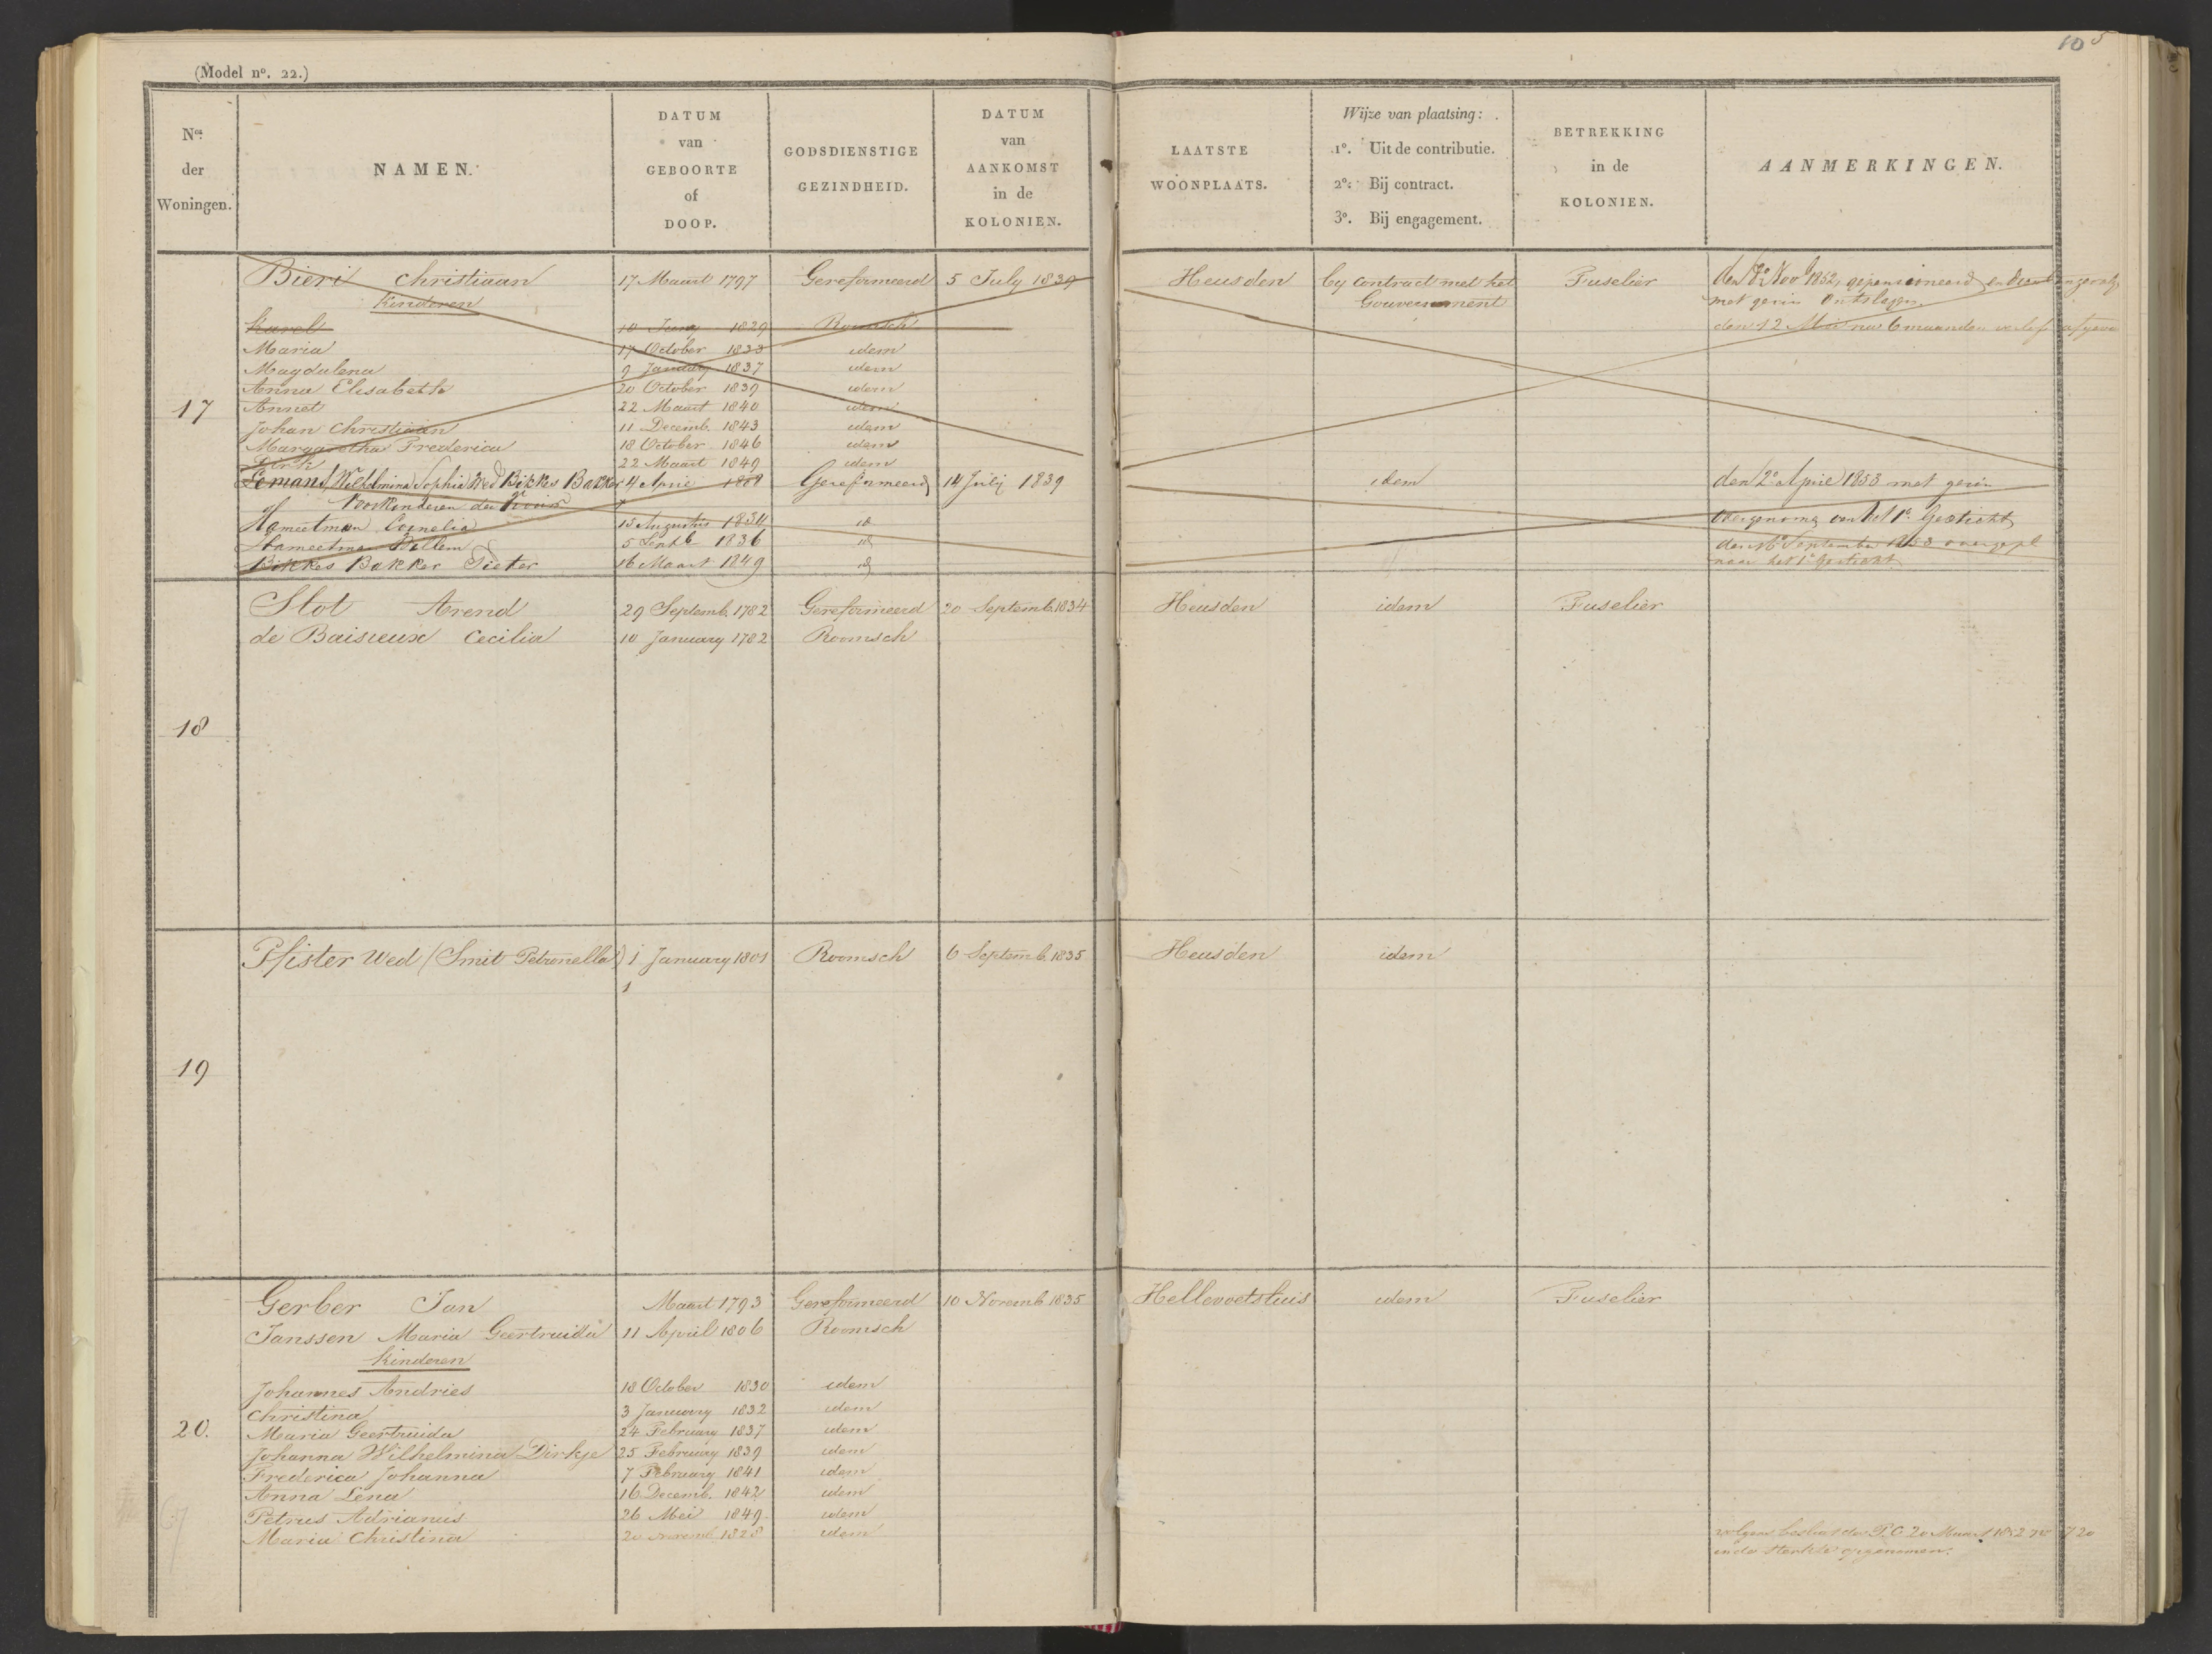 10 5
(Model n°. 22.)
Nos. der Woningen.
NAMEN.
DATUM van GEBOORTE of DOOP.
GODSDIENSTIGE GEZINDHEID.
DATUM van AANKOMST in de KOLONIEN.
LAATSTE WOONPLAATS.
Wijze van plaatsing:
1°. Uit de contributie.
2°. Bij contract.
3°. Bij engagement.
BETREKKING in de KOLONIEN.
AANMERKINGEN.
17
Bieri Christiaan 17 Maart 1797 Gereformeerd 5 July 1839 Heusden by contract met het Gouvernement Fuselier den Nov 1852, gepensioneerd en
met gezin ontslagen
Kinderen
Karel 10 Juny 1829 Roomsch den 12 Mei na 6 maanden verlof
Maria 17 October 1833 idem
Magdalena 9 January 1837 idem
Anna Elisabeth 20 October 1839 idem
Annet 22 Maart 1840 idem
Johan Christiaan 11 Decemb. 1843 idem
Margaretha Frederica 18 October 1846 idem
Dirk 22 Maart 1849 idem
Lemans, Wilhelmina Sophia Wed Bikkes Bakker 4 April Gereformeerd 14 Julij 1839 idem den 2e April 1853 met gezin
Voorkinderen der Vrouw
Hameetman Cornelia 15 Augustus 1834 id overgenomen van het 1e Gesticht
Hameetman Willem 5 Septb 1836 id den September 1853 overgepl
Bikkes Bakker Pieter 16 Maart 1849 id naar het 1e Gesticht
18
Slot Arend 29 Septemb. 1782 Gereformeerd 20 Septemb 1834 Heusden idem Fuselier
de Baisieux Cecilia 10 January 1782 Roomsch
19
Pfister Wed (Smit Petronella) 1 January 1801 Roomsch 6 Septemb. 1835 Heusden idem
1
20.
Gerber Jan Maart 1793 Gereformeerd 10 Novemb 1835 Hellevoetsluis idem Fuselier
Janssen Maria Geertruida 11 April 1806 Roomsch
Kinderen
Johannes Andries 18 October 1830 idem
Christina 3 January 1832 idem
Maria Geertruida 24 February 1837 idem
Johanna Wilhelmina Dirkje 25 February 1839 idem
Frederica Johanna 7 February 1841 idem
Anna Lena 16 Decemb. 1842 idem
Petrus Adrianus 26 Mei 1849. idem
Maria Christina 20 Novemb 1828 idem volgens besluit der P.C. 20 Maart 1852
in de sterkte opgenomen.
67